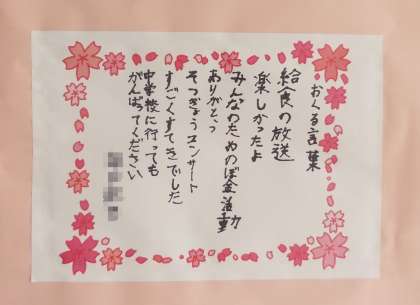 おくる言葉
給食の放送
楽しかったよ
みんなのためのぼ金活動
ありがとう
そつぎょうコンサート
すごくすてきでした
中学校に行っても
がんばってください